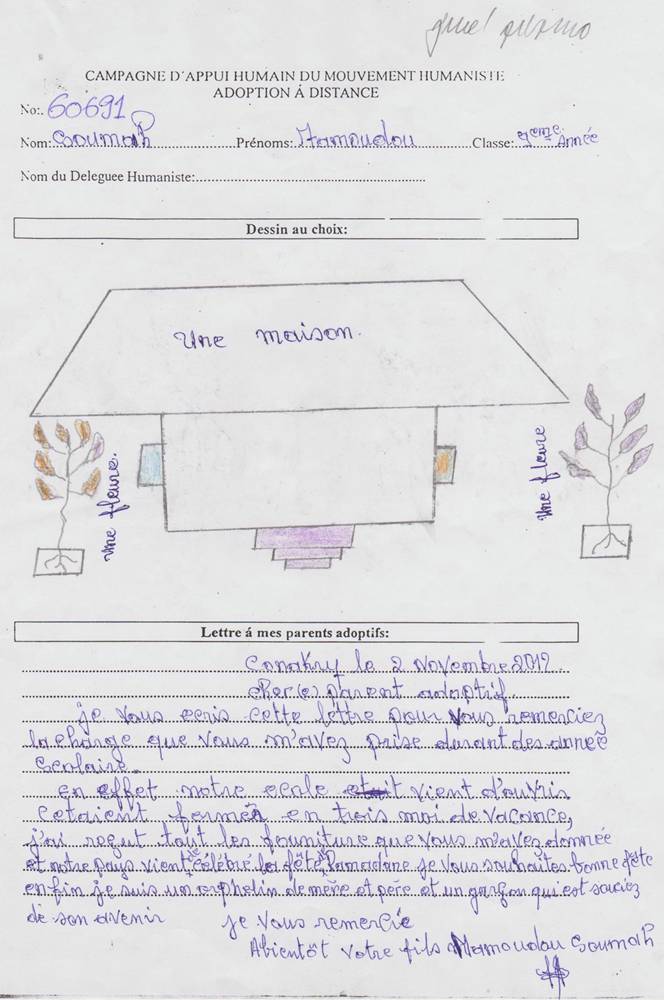 CAMPAGNE D'APPUI HUMAIN DU MOUVEMENT HUMANISTE
ADOPTION Á DISTANCE
No:. 60691
Nom: Soumah Prénoms: Mamoudou Classe: 9eme Année
Nom du Deleguee Humaniste:
Dessin au choix:
Une maison.
une fleure.
Une fleure
Lettre á mes parents adoptifs:
Conakry le 2 Novembre 2012
cher(e) parent adoptif
je vous ecris cette lettre pour vous remerciez
la charge que vous m'avez prise durant des année
Scolaire.
en effet notre ecole vient d'ouvris
cetaient fermer en trois moi de vacance,
j'ai reçut tout les founiture que vous m'avez donnée
et notre pays vient célébré la fête Ramadane je vous souhaites bonne fête
en fin je suis un orphelin de mère et père et un garçon qui est souciez
de son avenir je vous remercie
Abientôt votre fils Mamoudou Soumah